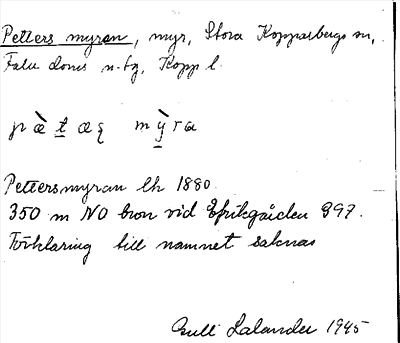 Petters myran, myr, Stora Kopparbergs sn,
Falu doms n-tg, Kopp l.
pæ̀tæȩ mỳra
Pettersmyran lk 1880.
350 m NO bron vid Efrikgården 897.
Förklaring till namnet saknas
Gulli Lalander 1945